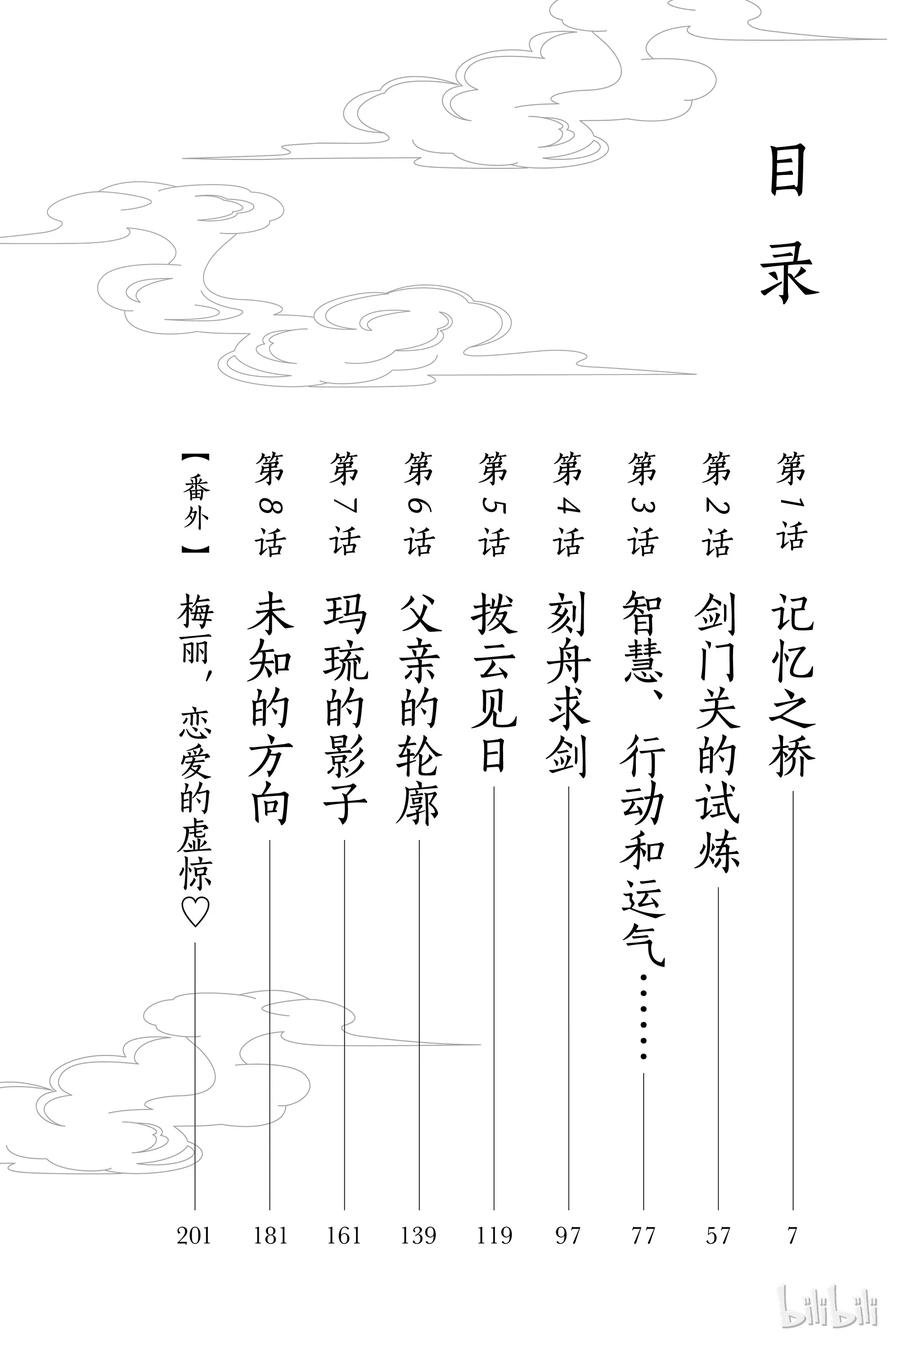 目录
第1话 记忆之桥 7
第2话 剑门关的试炼 57
第3话 智慧、行动和运气…… 77
第4话 刻舟求剑 97
第5话 拨云见日 119
第6话 父亲的轮廓 139
第7话 玛琉的影子 161
第8话 未知的方向 181
【番外】 梅丽，恋爱的虚惊♡ 201
bilibili